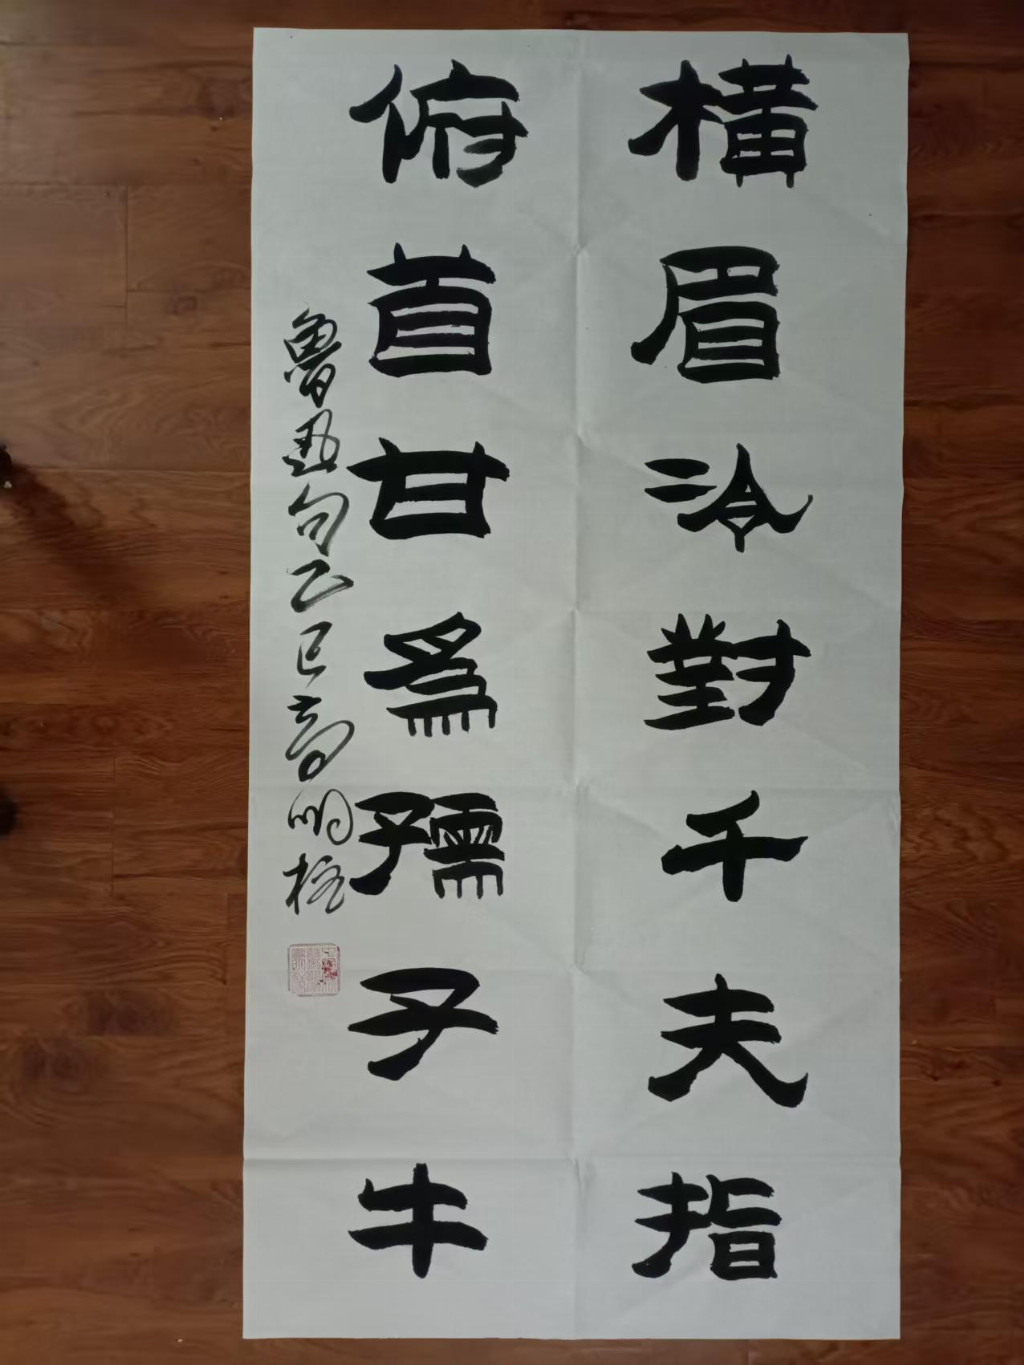 橫眉泠對千夫指
俯首甘為孺子牛
魯迅句乙巳高明柱